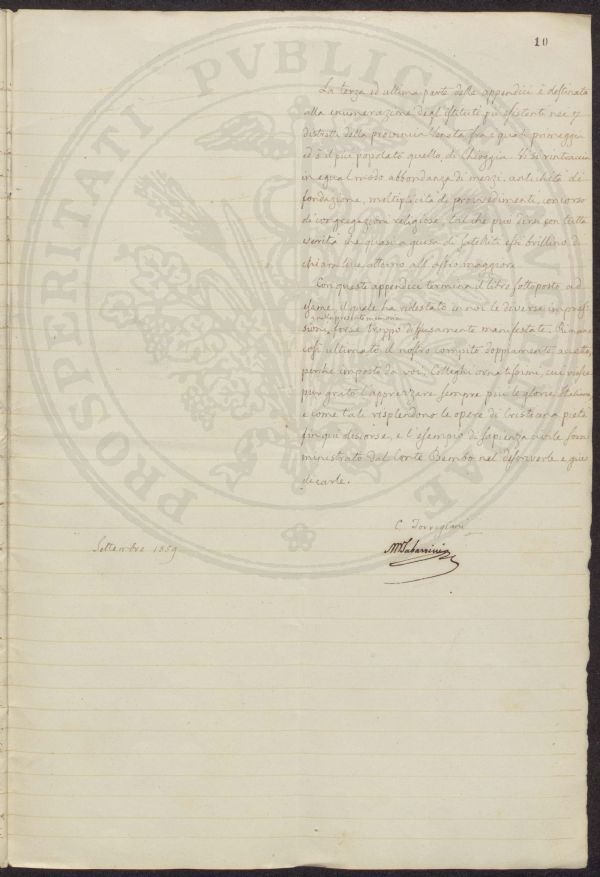 10
La terza ed ultima parte delle appendici è destinata
alla enumerazione degl'istituti pii esistenti nei 7
distretti della provincia Veneta fra i quali primeggia
ed è il più popolato quello, di Chioggia. Vi si rintraccia
in egual modo abbondanza di mezzi, antichità di
fondazione, moltiplicità di provvedimenti, concorso
di congregazioni religiose, tal che può dirsi con tutta
verità che quasi a guisa di satelliti essi brillino di
chiara luce attorno all'astro maggiore.
Con queste appendici termina il libro sottoposto ad
esame, il quale ha ridestato in noi le diverse impres-
sioni, forse troppo diffusamente manifestate. Rimane
in questa memoria
così ultimato il nostro compito doppiamente
perché imposto da voi, Colleghi ornatissimi, cui
pur grato l'apprezzare sempre più le glorie Italiane
e come tali risplendono le opere di Cristiana pietà
fin qui discorse, e l'esempio di sapienza civile som
ministrato dal Conte Bembo nel descriverle e giu
dicarle.
C. Torrigiani
Settembre 1859
MTabarrini
PROSPERITATI PVBLICAE AVGENDAE